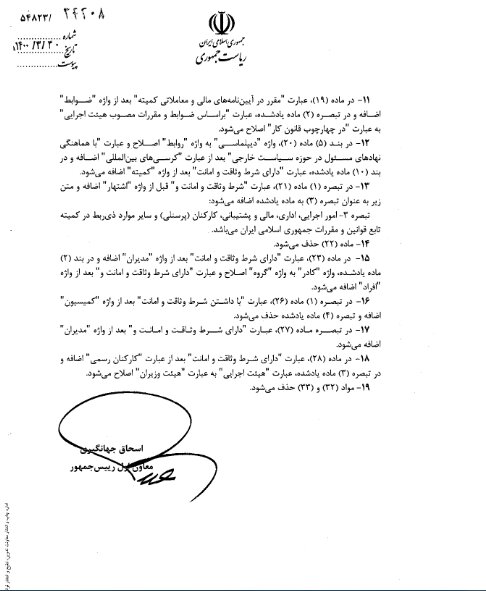 ۳۴۲۰۸ /۵۴۸۲۳
شماره
تاریخ ۱۴۰۰/۳/۲۰
پیوست
جمهوری اسلامی ایران
ریاست جمهوری
۱۱- در ماده (۱۹)، عبارت "مقرر در آیین‌نامه‌های مالی و معاملاتی کمیته" بعد از واژه "ضوابط"
اضافه و در تبصره (۲) ماده یادشده، عبارت "براساس ضوابط و مقررات مصوب هیئت اجرایی"
به عبارت "در چهارچوب قانون کار" اصلاح می‌شود.
۱۲- در بند (۵) ماده (۲۰)، واژه "دیپلماسی" به واژه "روابط" اصلاح و عبارت "با هماهنگی
نهادهای مسئول در حوزه سیاست خارجی" بعد از عبارت "کرسی‌های بین‌المللی" اضافه و در
بند (۱۰) ماده یادشده، عبارت "دارای شرط وثاقت و امانت" بعد از واژه "کمیته" اضافه می‌شود.
۱۳- در تبصره (۱) ماده (۲۱)، عبارت "شرط وثاقت و امانت و" قبل از واژه "اشتهار" اضافه و متن
زیر به عنوان تبصره (۳) به ماده یادشده اضافه می‌شود:
تبصره ۳- امور اجرایی، اداری، مالی و پشتیبانی، کارکنان (پرسنلی) و سایر موارد ذی‌ربط در کمیته
تابع قوانین و مقررات جمهوری اسلامی ایران می‌باشد.
۱۴- ماده (۲۲) حذف می‌شود.
۱۵- در ماده (۲۳)، عبارت "دارای شرط وثاقت و امانت" بعد از واژه "مدیران" اضافه و در بند (۲)
ماده یادشده، واژه "کادر" به واژه "گروه" اصلاح و عبارت "دارای شرط وثاقت و امانت و" بعد از واژه
"افراد" اضافه می‌شود.
۱۶- در تبصره (۱) ماده (۲۶)، عبارت "با داشتن شرط وثاقت و امانت" بعد از واژه "کمیسیون"
اضافه و تبصره (۴) ماده یادشده حذف می‌شود.
۱۷- در تبصره ماده (۲۷)، عبارت "دارای شرط وثاقت و امانت و" بعد از واژه "مدیران"
اضافه می‌شود.
۱۸- در ماده (۲۸)، عبارت "دارای شرط وثاقت و امانت" بعد از عبارت "کارکنان رسمی" اضافه و
در تبصره (۳) ماده یادشده، عبارت "هیئت اجرایی" به عبارت "هیئت وزیران" اصلاح می‌شود.
۱۹- مواد (۳۲) و (۳۳) حذف می‌شود.
اسحاق جهانگیری
معاون اول رییس‌جمهور